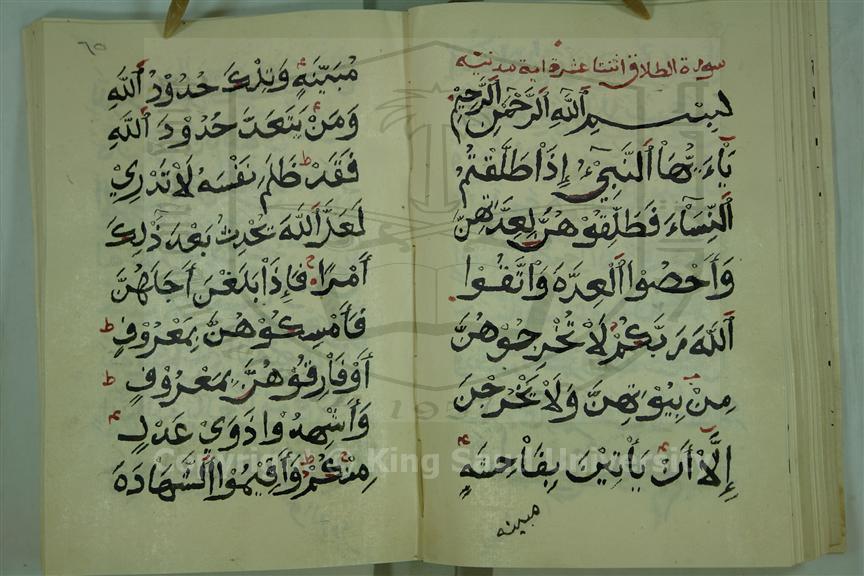 سورة الطلاق اثنتا عشرة اية مدنية
بِسْمِ اللَّهِ الرَّحْمَنِ الرَّحِيمِ
يَاءَيُّهَا النَّبِيُّ إِذَا طَلَّقْتُمُ
النِّسَاءَ فَطَلِّقُوهُنَّ لِعِدَّتِهِنَّ
وَأَحْصُوا الْعِدَّةَ وَاتَّقُوا
اللَّهَ رَبَّكُمْ لَا تُخْرِجُوهُنَّ
مِنْ بُيُوتِهِنَّ وَلَا يَخْرُجْنَ
إِلَّا أَنْ يَأْتِينَ بِفَاحِشَةٍ
مبينة
٦٥
مُبَيِّنَةٍ وَتِلْكَ حُدُودُ اللَّهِ
وَمَنْ يَتَعَدَّ حُدُودَ اللَّهِ
فَقَدْ ظَلَمَ نَفْسَهُ لَا تَدْرِي
لَعَلَّ اللَّهَ يُحْدِثُ بَعْدَ ذَلِكَ
أَمْرًا فَإِذَا بَلَغْنَ أَجَلَهُنَّ
فَأَمْسِكُوهُنَّ بِمَعْرُوفٍ
أَوْ فَارِقُوهُنَّ بِمَعْرُوفٍ
وَأَشْهِدُوا ذَوَيْ عَدْلٍ
مِنْكُمْ وَأَقِيمُوا الشَّهَادَةَ
Copyright © King Saud University